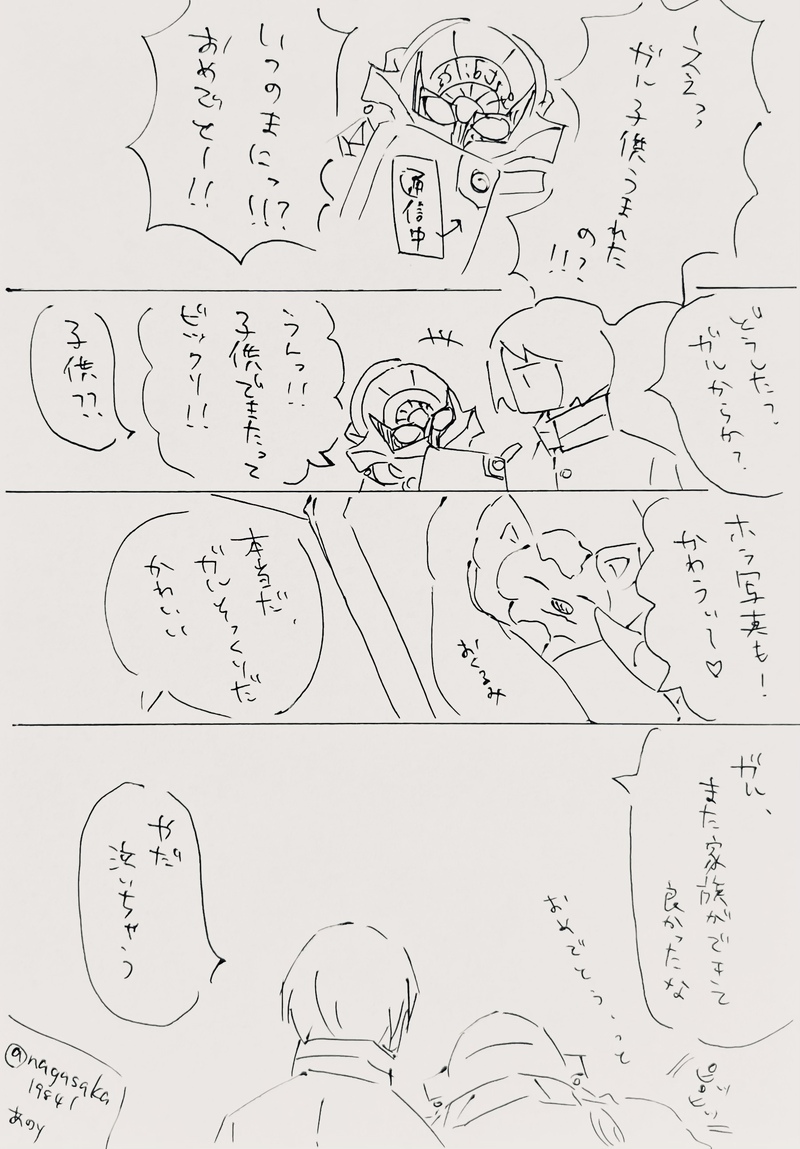 ええっ
ガル子供うまれた
の?
!!?
いつのまにっ!!?
おめでとー!!
通信中
どうした?
ガルからか?
うんっ!!
子供できたって
ビックリ!!
子供??
ホラ写真も!
かわういー♡
おくるみ
本当だ、
ガルそっくりだ
かわいい
ガル、
また家族ができて
良かったな
おめでとう、っと
ピッ
ピッ
やだ
泣いちゃう
@nagasaka
19841